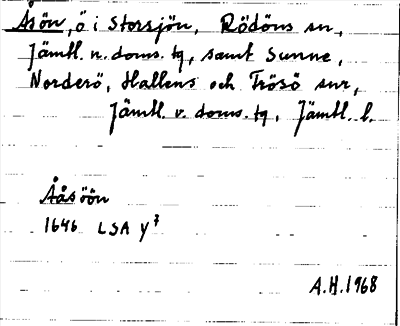 Åsön, ö i Storsjön, Rödöns sn,
Jämtl. n. doms. tg, samt Sunne,
Norderö, Hallens och Frösö snr,
Jämtl. v. doms. tg, Jämtl. l.
Ååsöön
1646 LSA Y⁷
A.H. 1968